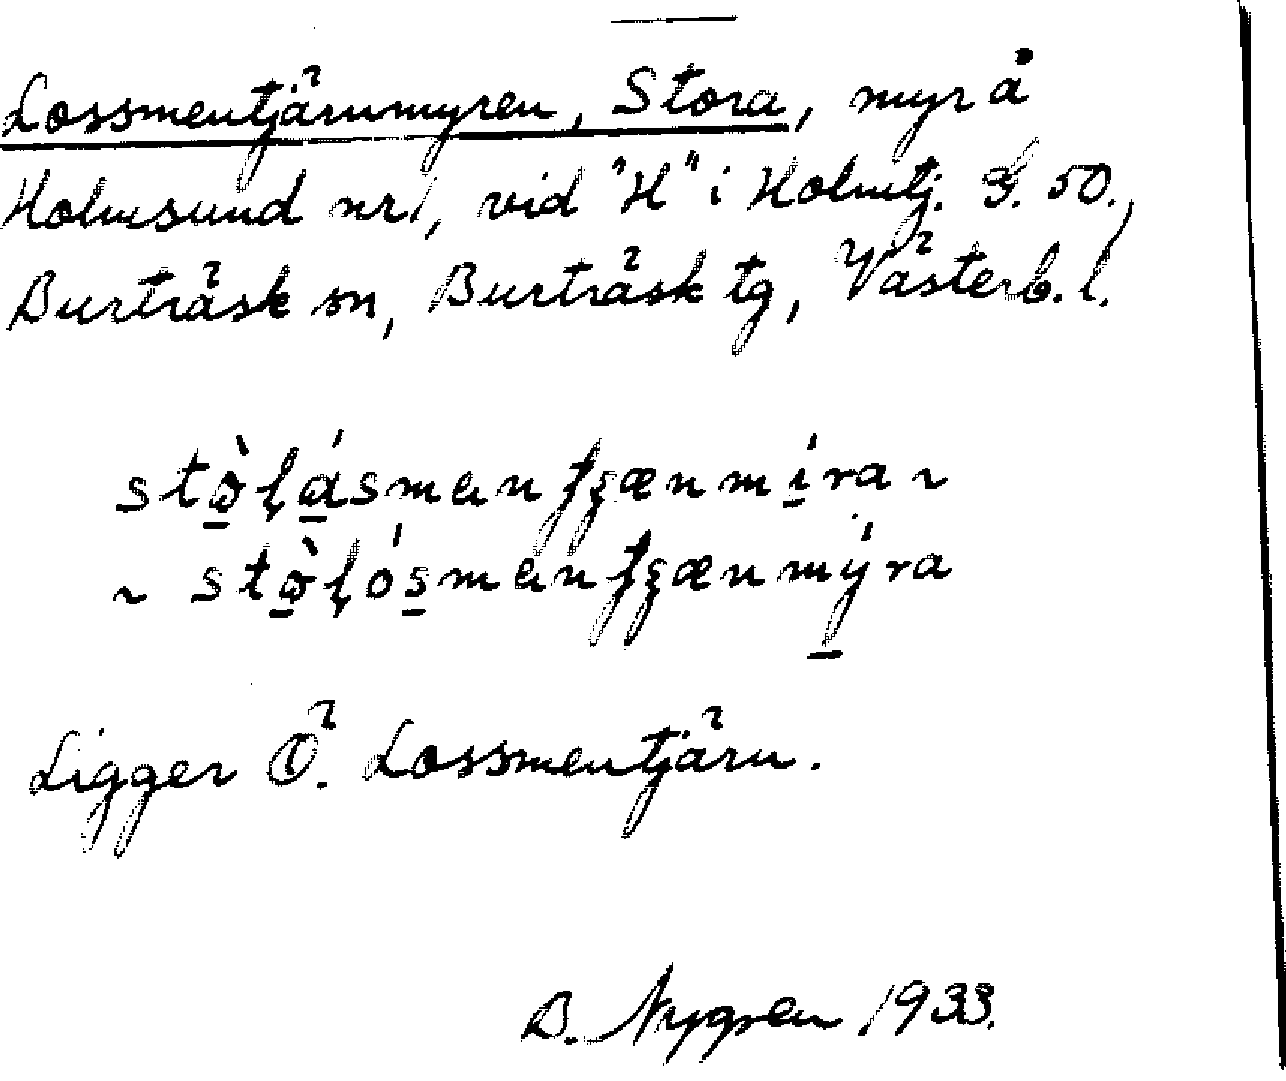 Lossmentjärnmyren, Stora, myr å
Holmsund nr 1, vid "H" i Holmtj. G. 50.,
Burträsk sn, Burträsk tg, Västerb. l.
Ligger Ö. Lossmentjärn.
B. Nygren 1933.